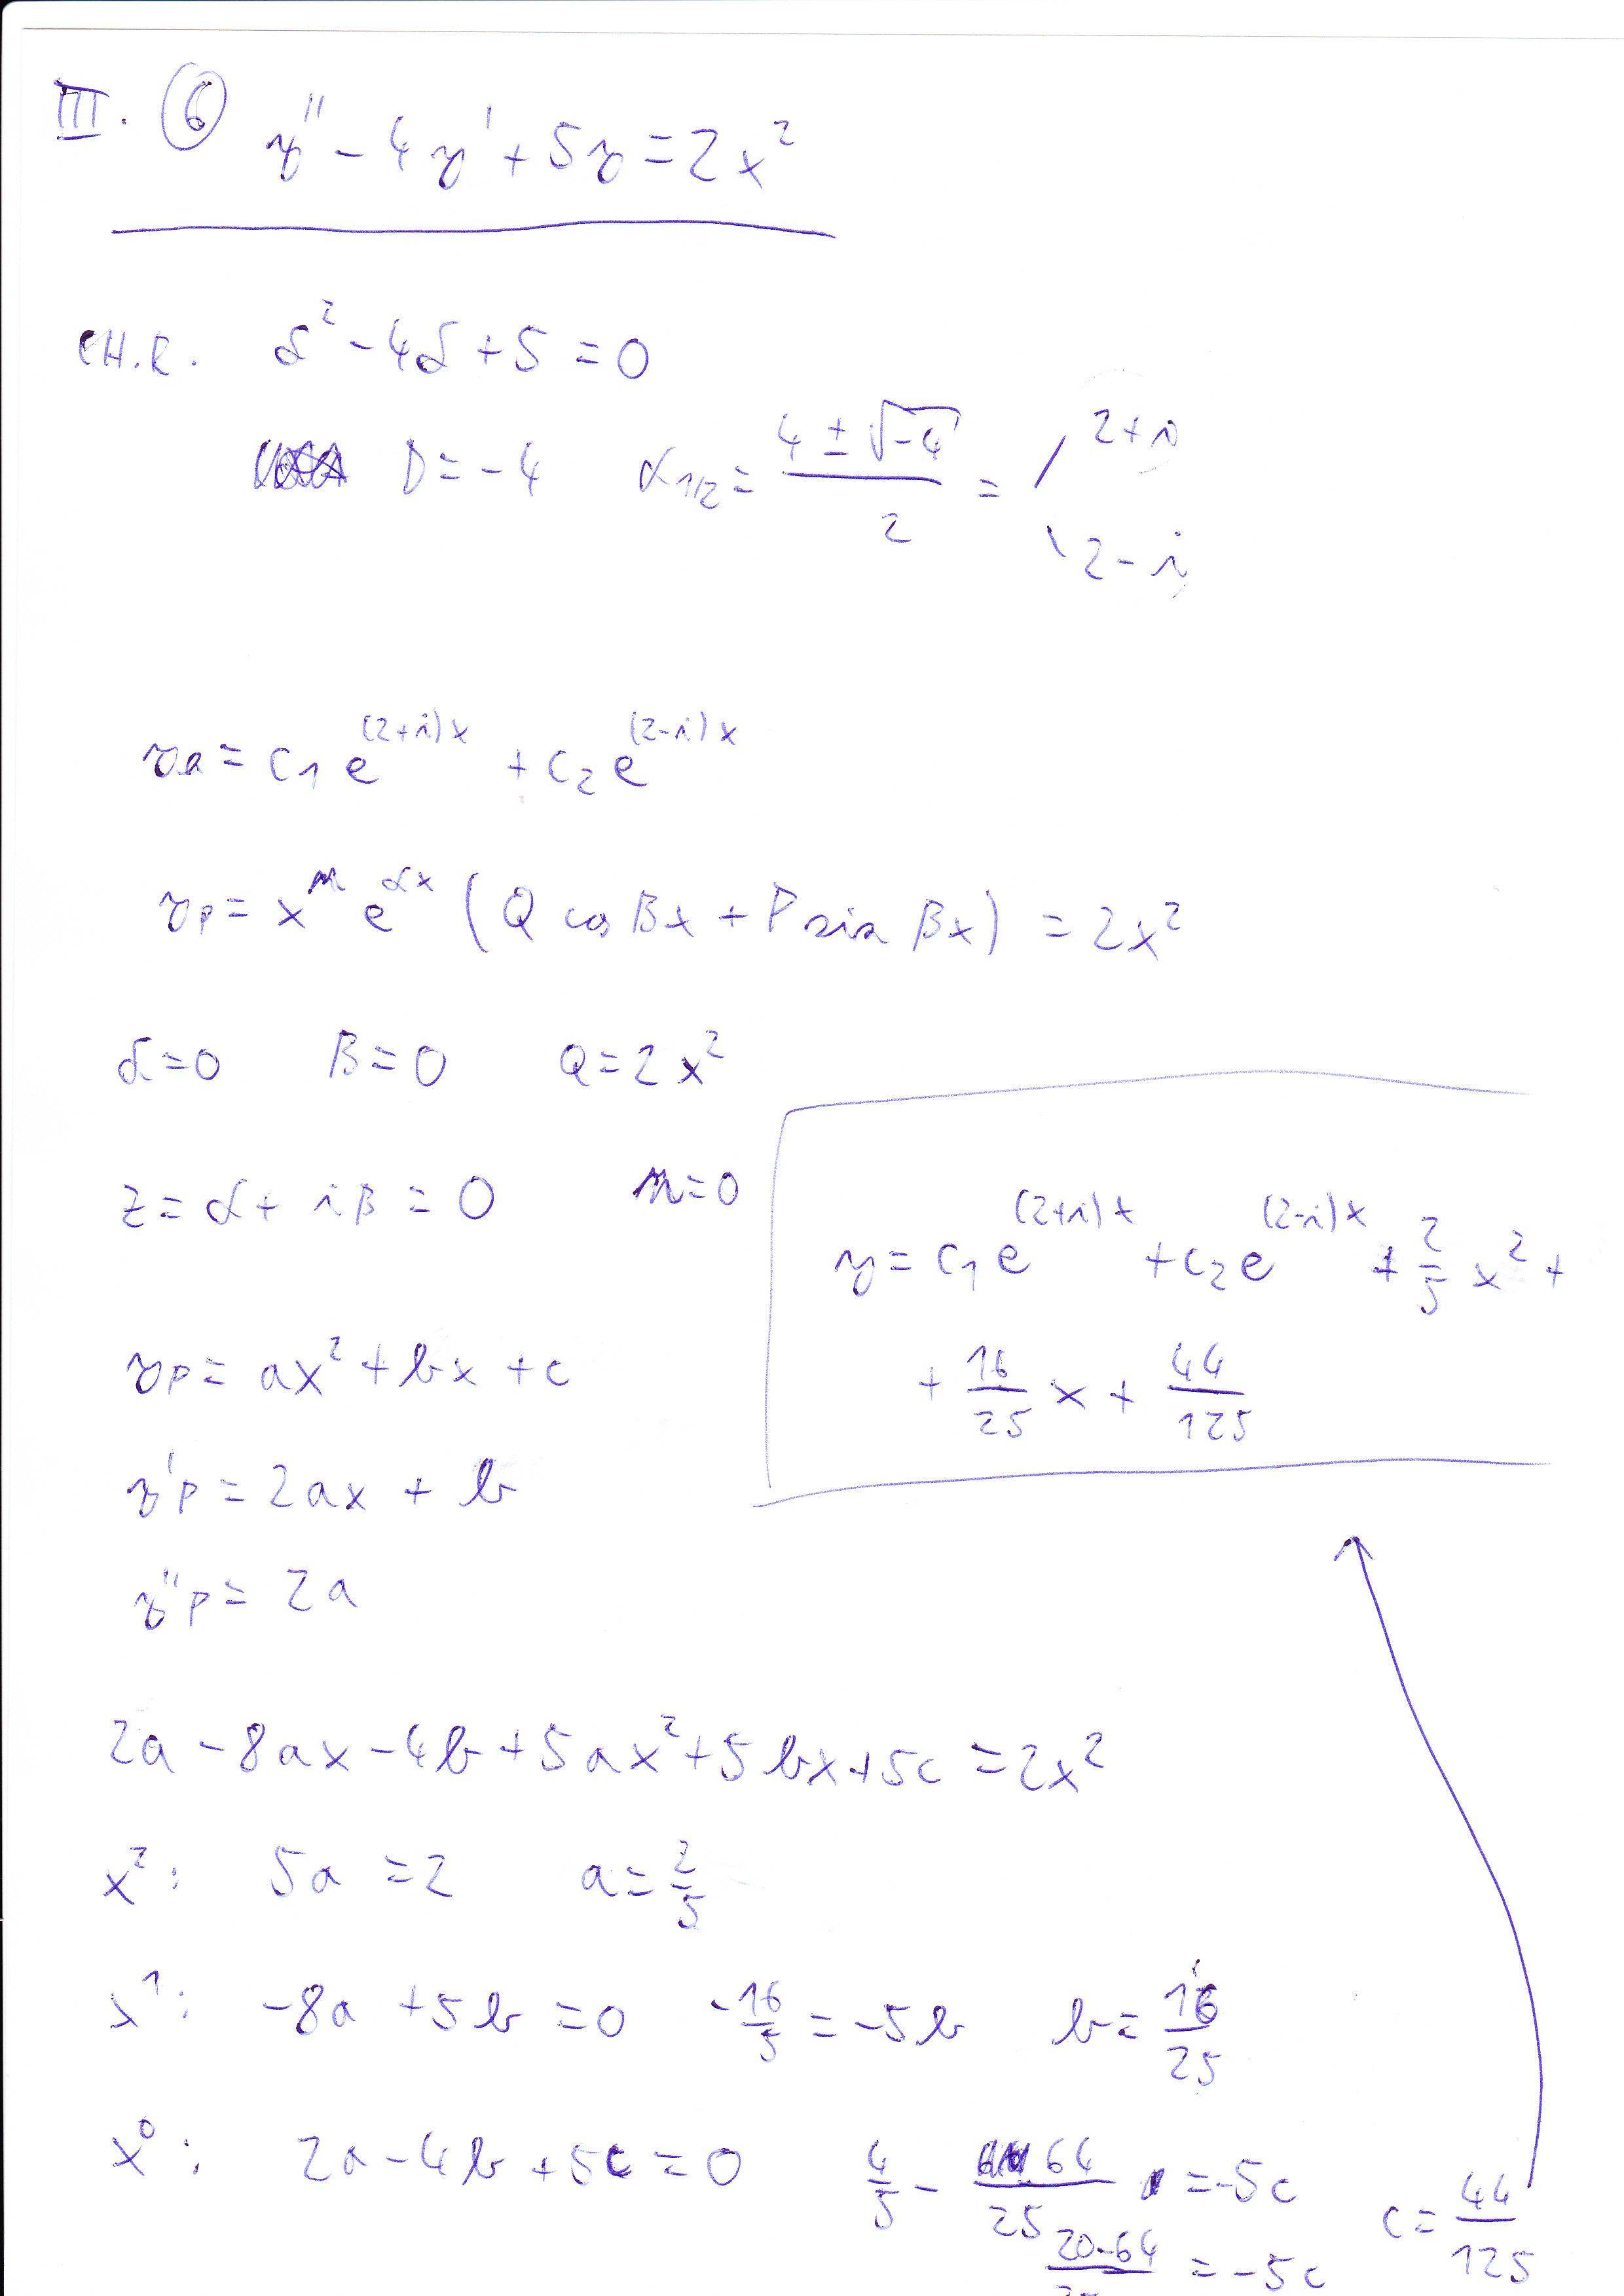 III. ⑥ y'' - 4y' + 5y = 2x²
CH.R. α² - 4α + 5 = 0
D = -4 α₁/₂ = (4 ± √-4)/2 = / 2+i
\ 2-i
ya = c₁e^(2+i)x + c₂e^(2-i)x
yp = x^m e^αx (Q cos βx + P sin βx) = 2x²
α = 0 β = 0 Q = 2x²
z = α + iβ = 0 m = 0
y = c₁e^(2+i)x + c₂e^(2-i)x + 2/5 x² +
+ 16/25 x + 44/125
yp = ax² + bx + c
y'p = 2ax + b
y''p = 2a
2a - 8ax - 4b + 5ax² + 5bx + 5c = 2x²
x²: 5a = 2 a = 2/5
x¹: -8a + 5b = 0 -16/5 = -5b b = 16/25
x⁰: 2a - 4b + 5c = 0 4/5 - 64/25 = -5c c = 44/125
20-64/25 = -5c